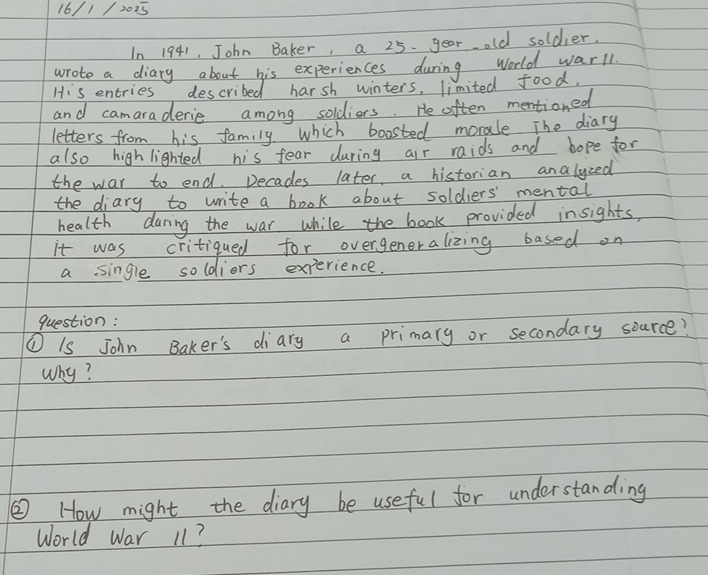 16/1/2025
In 1941, John Baker, a 25-year-old soldier,
wrote a diary about his experiences during World war II.
His entries described harsh winters, limited food,
and camaraderie among soldiers. He often mentioned
letters from his family, which boosted morale The diary
also highlighted his fear during air raids and hope for
the war to end. Decades later, a historian analyzed
the diary to write a book about soldiers' mental
health during the war while the book provided insights,
it was critiqued for overgeneralizing based on
a single soldiers experience.
question:
① Is John Baker's diary a primary or secondary source?
Why?
② How might the diary be useful for understanding
World War II?